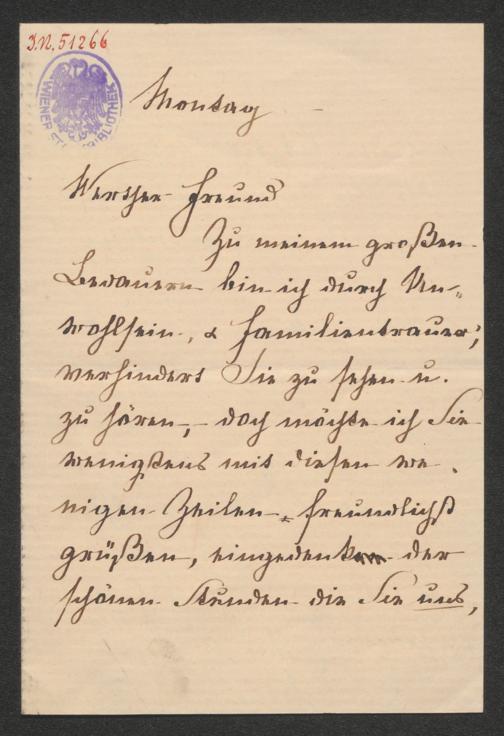 J.N. 51266
WIENER STADTBIBLIOTHEK
Montag
Werther Freund
Zu meinem großen
Bedauern bin ich durch Un„
wohlsein, & Familientrauer,
verhindert Sie zu sehen u.
zu hören, – doch möchte ich Sie
wenigstens mit diesen we„
nigen Zeilen freundlichst
grüßen, eingedenk der
schönen Stunden die Sie uns,